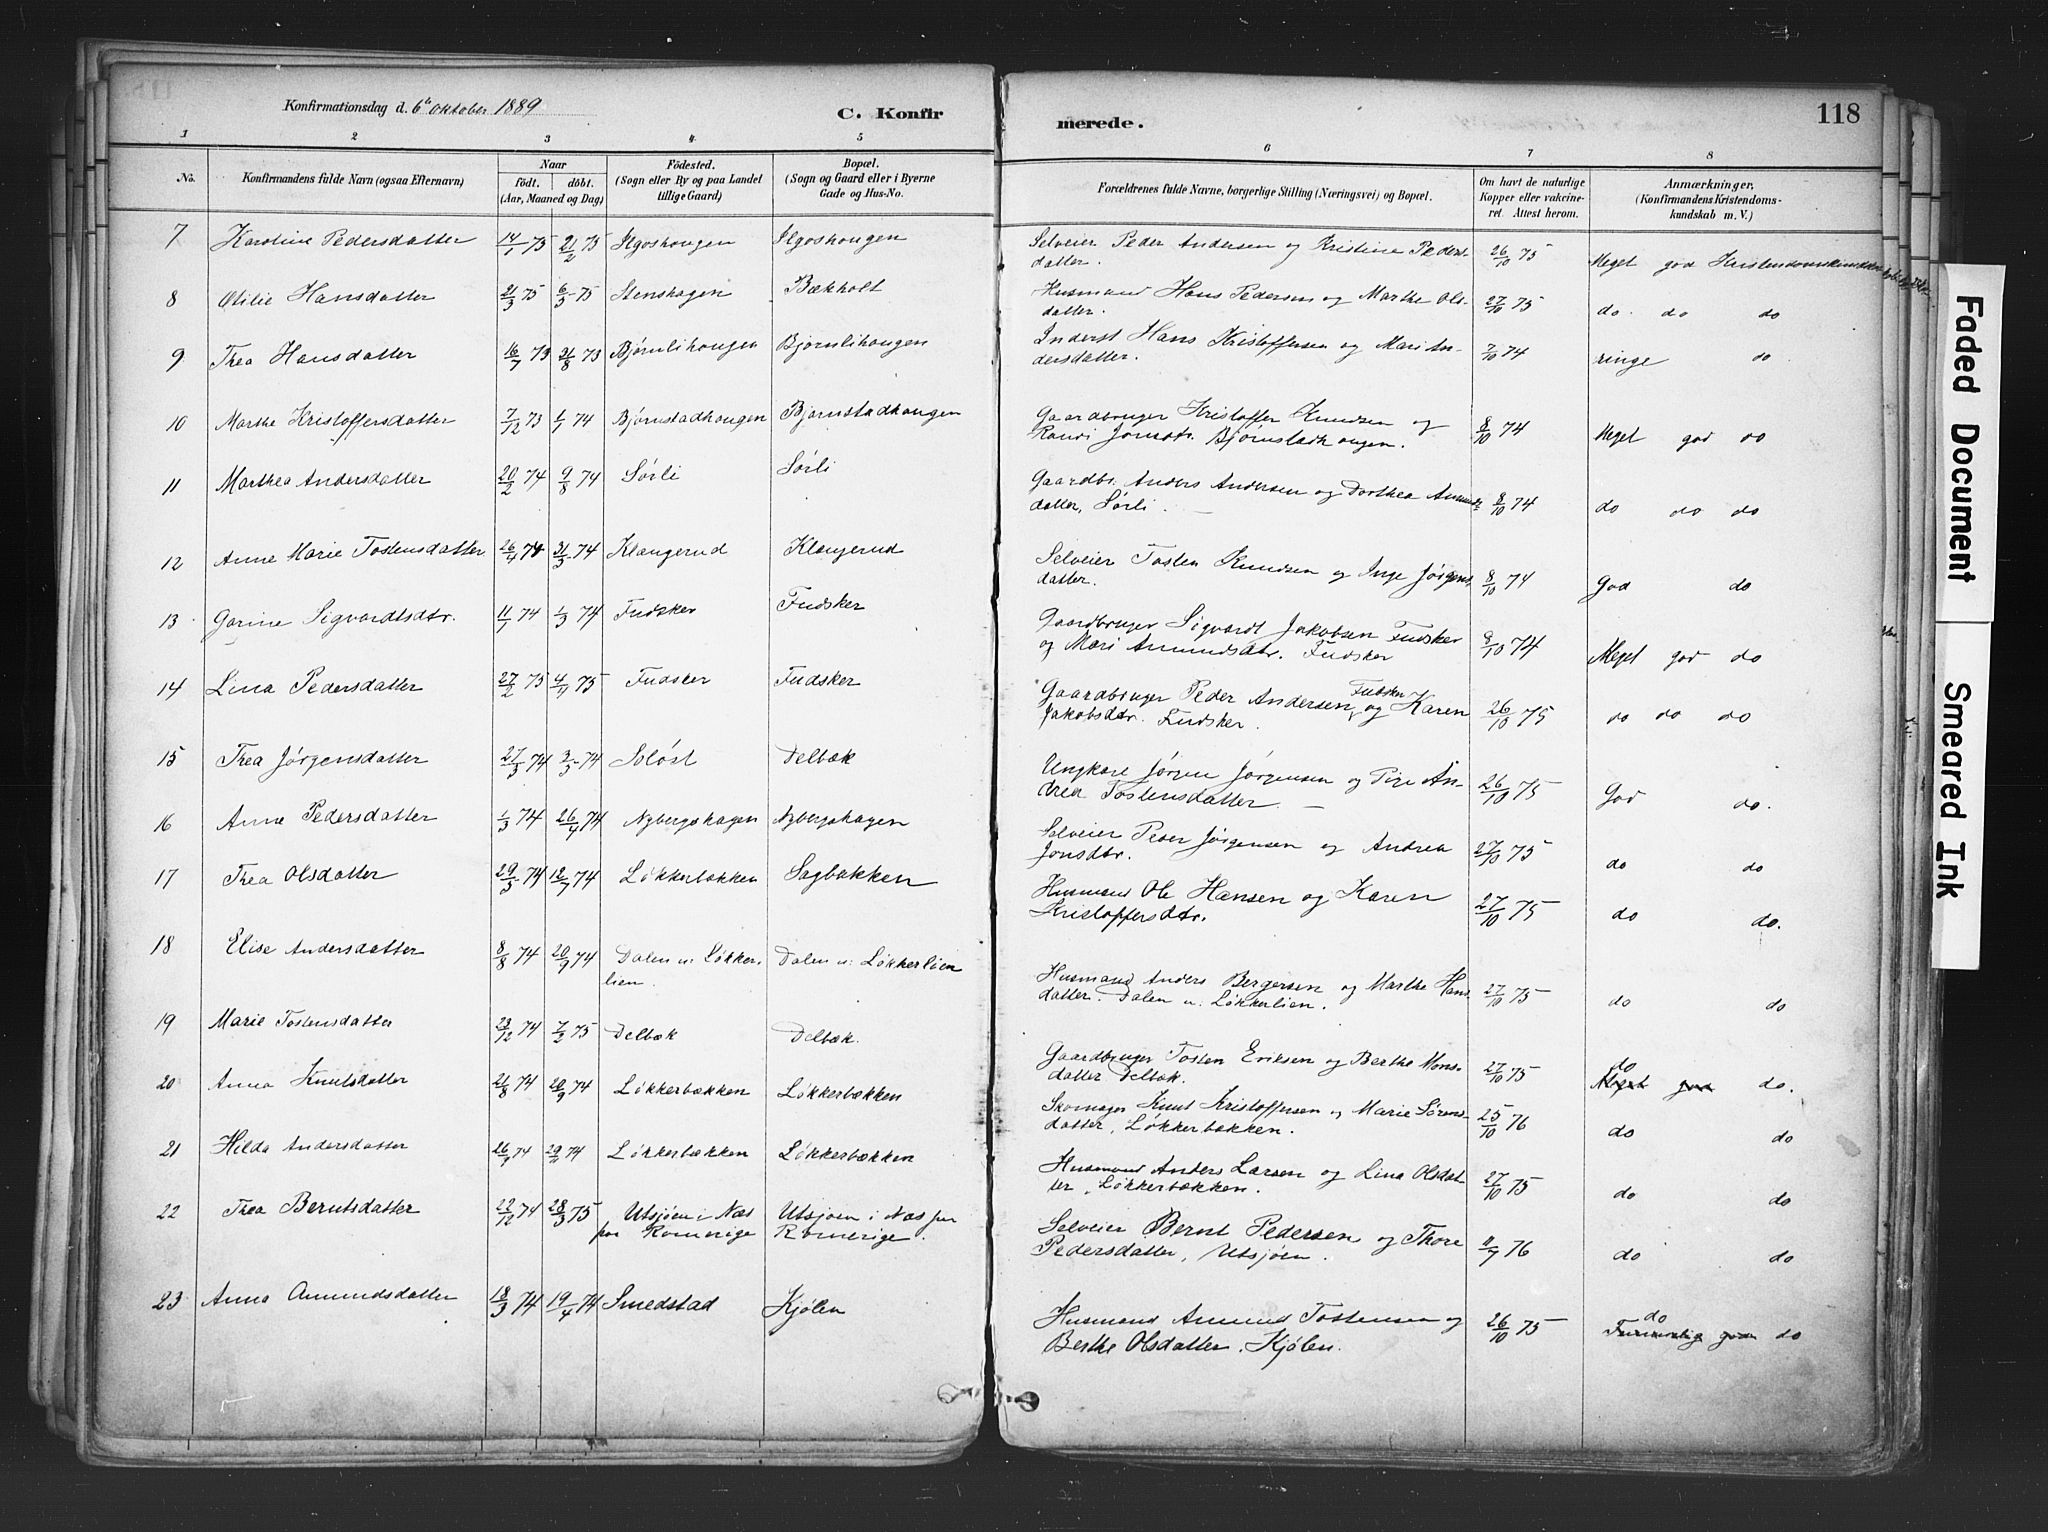 Konfirmationsdag d. 6te Oktober 1889
C. Konfir
merede.
118
1 2 3 4 5 6 7 8
No.
Konfirmandens fulde Navn (ogsaa Efternavn)
Naar
født. døbt.
(Aar, Maaned og Dag)
Fødested.
(Sogn eller By og paa Landet
tillige Gaard)
Bopæl.
(Sogn og Gaard eller i Byerne
Gade og Hus-No.
Forældrenes fulde Navne, borgerlige Stilling (Næringsvei) og Bopæl.
Om havt de naturlige
Kopper eller vakcine-
ret. Attest herom.
Anmærkninger,
(Konfirmandens Kristendoms-
kundskab m. V.)
7 Karoline Pedersdatter 14/1 75 21/2 75 Ilgoshougen Ilgoshougen Selveier Peder Andersen og Kristine Peders-
datter. 26/10 75 Meget god Kristendomskundskab
8 Otilie Hansdatter 21/3 75 6/5 75 Stenshagen Bækholt Husmand Hans Pedersen og Marthe Ols-
datter. 27/10 75 do. do do
9 Thea Hansdatter 16/7 73 31/8 73 Bjørnlihougen Bjørnlihougen Inderst Hans Kristoffersen og Mari An-
dersdatter. 7/10 74 ringe do
10 Marthe Kristoffersdatter 7/12 73 1/1 74 Bjørnstadhougen Bjørnstadhougen Gaardbruger Kristoffer Knudsen og
Randi Jonsdtr. Bjørnstadhougen. 8/10 74 Meget god do
11 Marthea Andersdatter 20/2 74 9/8 74 Sørli Sørli Gaardbr. Anders Andersen og Dorthea Amunds-
datter, Sørli. 8/10 74 do do do
12 Anne Marie Tostensdatter 26/4 74 31/5 74 Klangerud Klangerud Selveier Tosten Knudsen og Inge Jørgens-
datter. 8/10 74 God do
13 Gorine Sigvardtsdtr. 11/1 74 1/3 74 Fudsker Fudsker Gaardbruger Sigvardt Jakobsen Fudsker
og Mari Amundsdtr. Fudsker 8/10 74 Meget god do
14 Lina Pedersdatter 27/2 75 4/11 75 Fudsker Fudsker Gaardbruger Peder Andersen Fudsker og Karen
Jakobsdtr. Fudsker. 26/10 75 do do do
15 Thea Jørgensdatter 27/3 74 3/5 74 Soløst Delbæk Ungkare Jørgen Jørgensen og Pige An-
drea Tostensdatter. 26/10 75 God do.
16 Anne Pedersdatter 1/3 74 26/4 74 Nybergshagen Nybergshagen Selveier Peder Jørgensen og Andrea
Jonsdtr. 27/10 75 do do
17 Thea Olsdatter 29/5 74 12/7 74 Løkkerbakken Sagbakken Husmand Ole Hansen og Karen
Kristoffersdtr. 27/10 75 do do.
18 Elise Andersdatter 8/8 74 20/9 74 Dalen u: Løkker-
lien. Dalen u: Løkkerlien Husmand Anders Bergersen og Marthe Hans-
datter. Dalen u. Løkkerlien. 27/10 75 do do
19 Marie Tostensdatter 23/12 74 7/2 75 Delbæk Delbæk. Gaardbruger Tosten Eriksen og Berthe Mons-
datter Delbæk. 27/10 75 do
Meget god do.
20 Anna Knutsdatter 21/8 74 20/9 74 Løkkerbækken Løkkerbækken Skomager Knut Kristoffersen og Marie Sørens-
datter, Løkkerbækken. 25/10 76 do do
21 Hilda Andersdatter 26/9 74 29/11 74 Løkkerbækken Løkkerbækken Husmand Anders Larsen og Lina Olsdat-
ter, Løkkerbækken. 27/10 75 do do
22 Thea Berntsdatter 22/12 74 28/3 75 Utsjøen i Næs
paa Romerige Utsjøen i Næs paa
Romerige. Selveier Bernt Pedersen og Thore
Pedersdatter, Utsjøen. 11/9 76 do do
23 Anna Amundsdatter 18/3 74 19/4 74 Smedstad Kjølen Husmand Amund Tostensen og
Berthe Olsdatter. Kjølen. 26/10 75 do
do
Faded Document
Smeared Ink